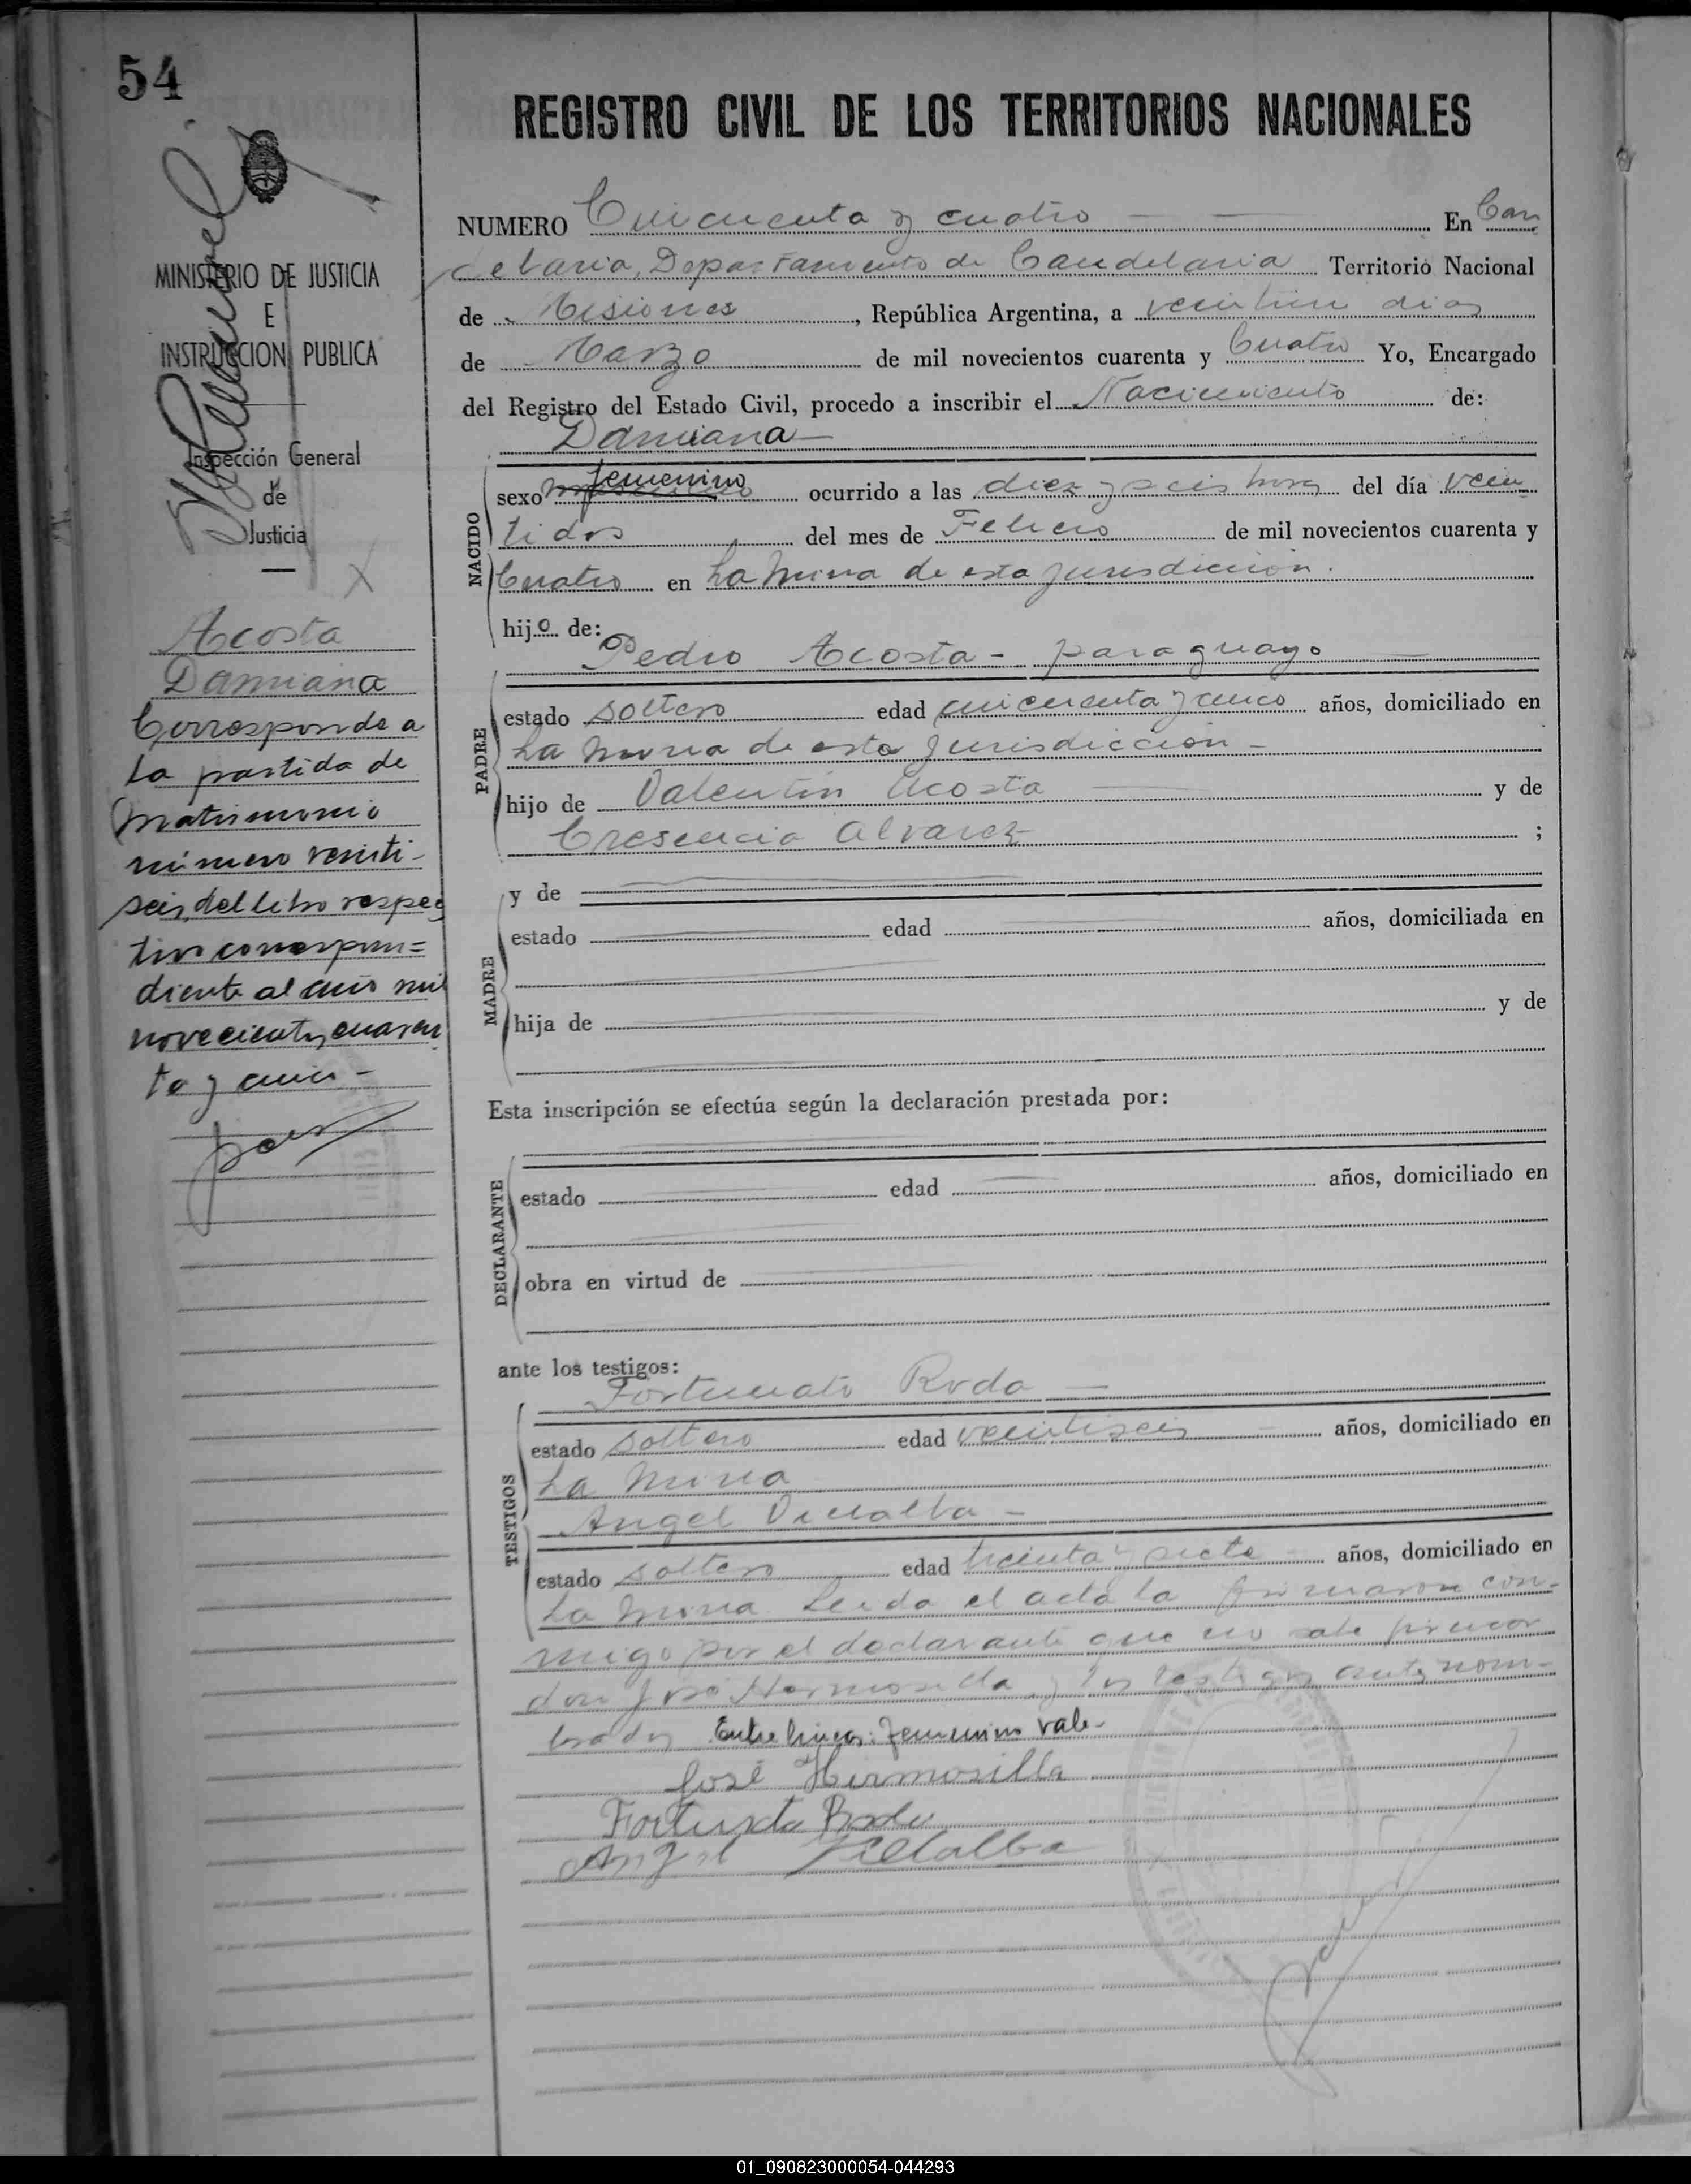 54
REGISTRO CIVIL DE LOS TERRITORIOS NACIONALES
MINISTERIO DE JUSTICIA
E
INSTRUCCION PUBLICA
Inspección General
de
Justicia
Acosta
Damiana
Corresponde a
la partida de
matrimonio
número veinti-
seis, del libro respec
tivo correspon=
diente al año mil
novecientos cuaren
ta y
NUMERO Cincuenta y cuatro En Can
delaria, Departamento de Candelaria Territorio Nacional
de Misiones, República Argentina, a veintiun dias
de Marzo de mil novecientos cuarenta y Cuatro Yo, Encargado
del Registro del Estado Civil, procedo a inscribir el Nacimiento de:
Damiana
NACIDO
femenino
sexo masculino ocurrido a las diez y seis horas del día vein
tidos del mes de Febrero de mil novecientos cuarenta y
Cuatro en La Mina de esta jurisdicción.
hijo de:
Pedro Acosta - paraguayo
PADRE
estado soltero edad cincuenta y cinco años, domiciliado en
La Mina de esta Jurisdicción -
hijo de Valentin Acosta y de
Cresencia Alvarez ;
MADRE
y de
estado edad años, domiciliada en
hija de y de
Esta inscripción se efectúa según la declaración prestada por:
DECLARANTE
estado edad años, domiciliado en
obra en virtud de
ante los testigos:
Fortunato Roda -
TESTIGOS
estado soltero edad veintiseis años, domiciliado en
La Mina
Angel Villalba -
estado soltero edad treinta y siete años, domiciliado en
La Mina. Leida el acta la firmaron con-
migo por el declarante que no sabe firmar
don José Hermosilla y los testigos antes nom-
brados Entre lineas: femenino vale-
José Hermosilla
Fortunato Roda
Angel Villalba
01_090823000054-044293